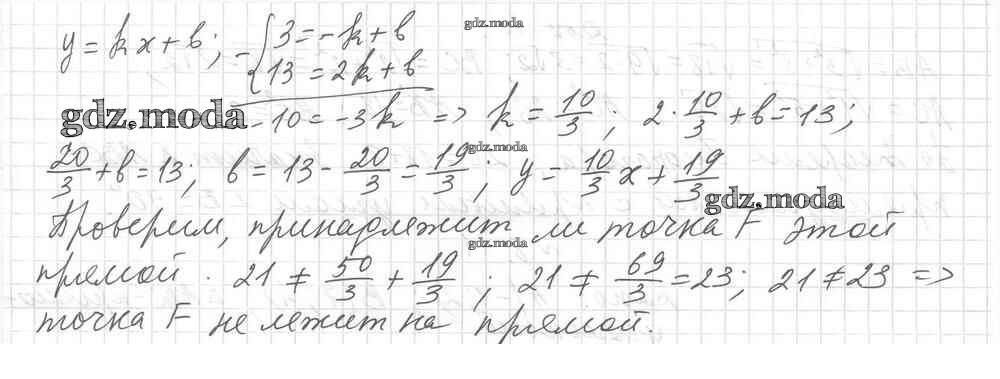 gdz.moda
y = kx + b; - { 3 = -k + b
13 = 2k + b
gdz.moda
-10 = -3k => k = 10/3; 2 · 10/3 + b = 13;
gdz.moda
20/3 + b = 13; b = 13 - 20/3 = 19/3; y = 10/3 x + 19/3
gdz.moda
Проверим, принадлежит ли точка F этой
gdz.moda
прямой. 21 ≠ 50/3 + 19/3; 21 ≠ 69/3 = 23; 21 ≠ 23 =>
точка F не лежит на прямой.